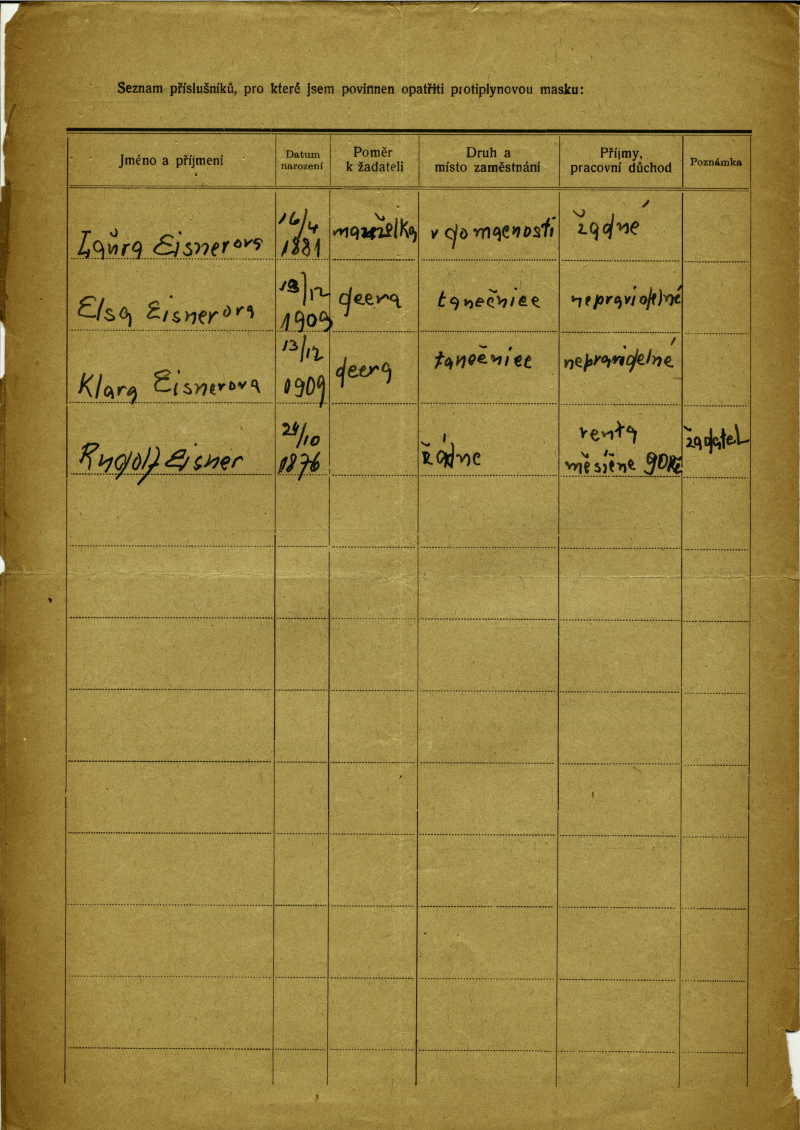 Seznam příslušníků, pro které jsem povinnen opatřiti protiplynovou masku:
Jméno a příjmení
Datum narození
Poměr k žadateli
Druh a místo zaměstnání
Příjmy, pracovní důchod
Poznámka
Laura Eisnerova 16/4 1881 manželka v domacnosti žadné
Elsa Eisnerova 13/12 1909 dcera tanečnice nepravidelné
Klara Eisnerova 13/12 1909 dcera tanečnice nepravidelné
Rudolf Eisner 24/10 1876 žádne renta měsíčne 90Kč žadatel